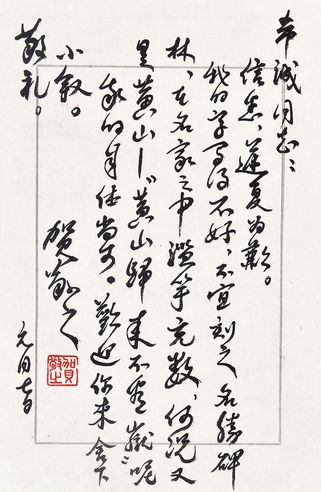 希诚同志：
信悉，迟复为歉。
我的字写得不好，不宜刻之名胜碑
林，在名家之中滥竽充数，何况又
是黄山——“黄山归来不看岳”呢
我的身体尚可。欢迎你来舍下
小叙。
敬礼。
贺敬之
元月
贺敬之